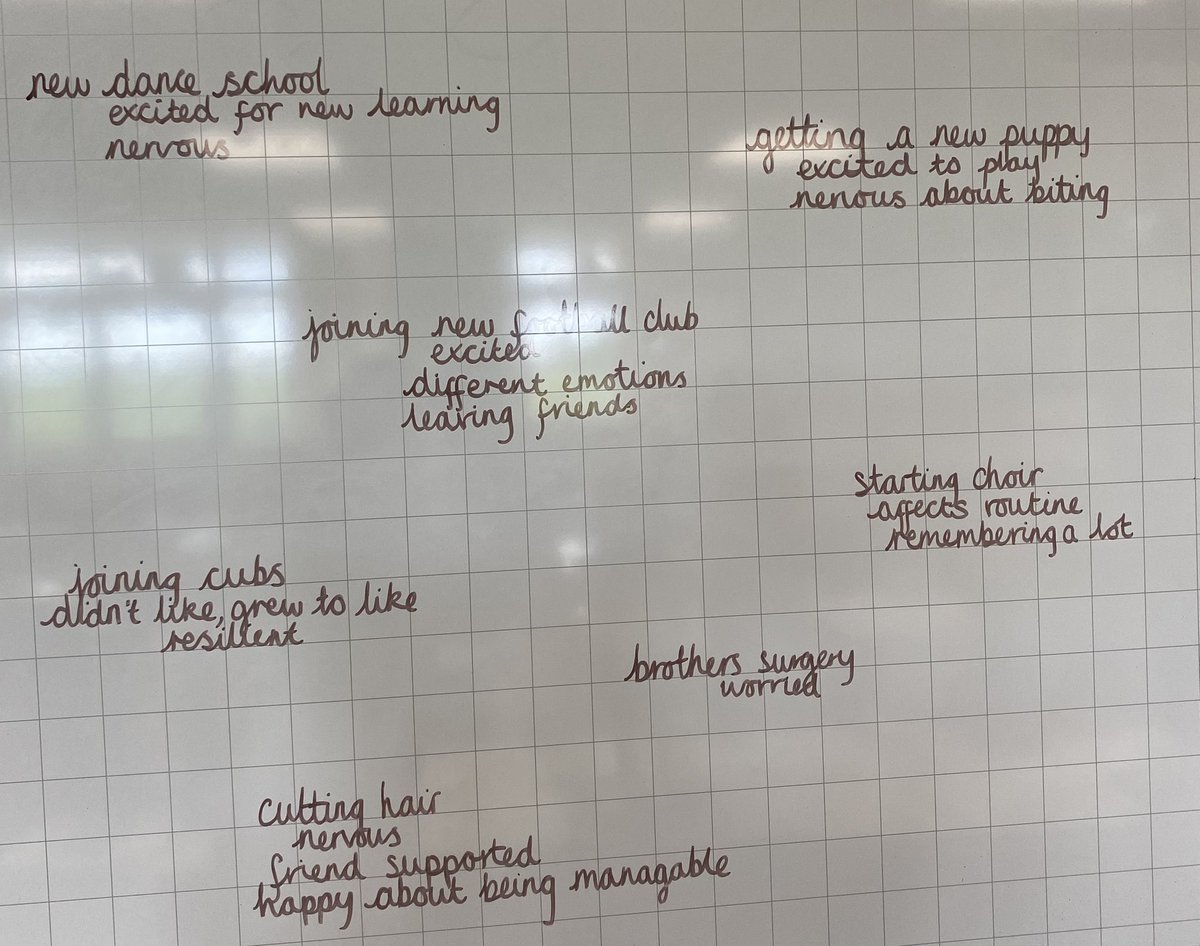 new dance school
excited for new learning
nervous
getting a new puppy
excited to play
nervous about biting
joining new football club
excited
different emotions
leaving friends
starting choir
affects routine
remembering a lot
joining cubs
didn't like, grew to like
resilient
brothers surgery
worried
cutting hair
nervous
friend supported
happy about being managable